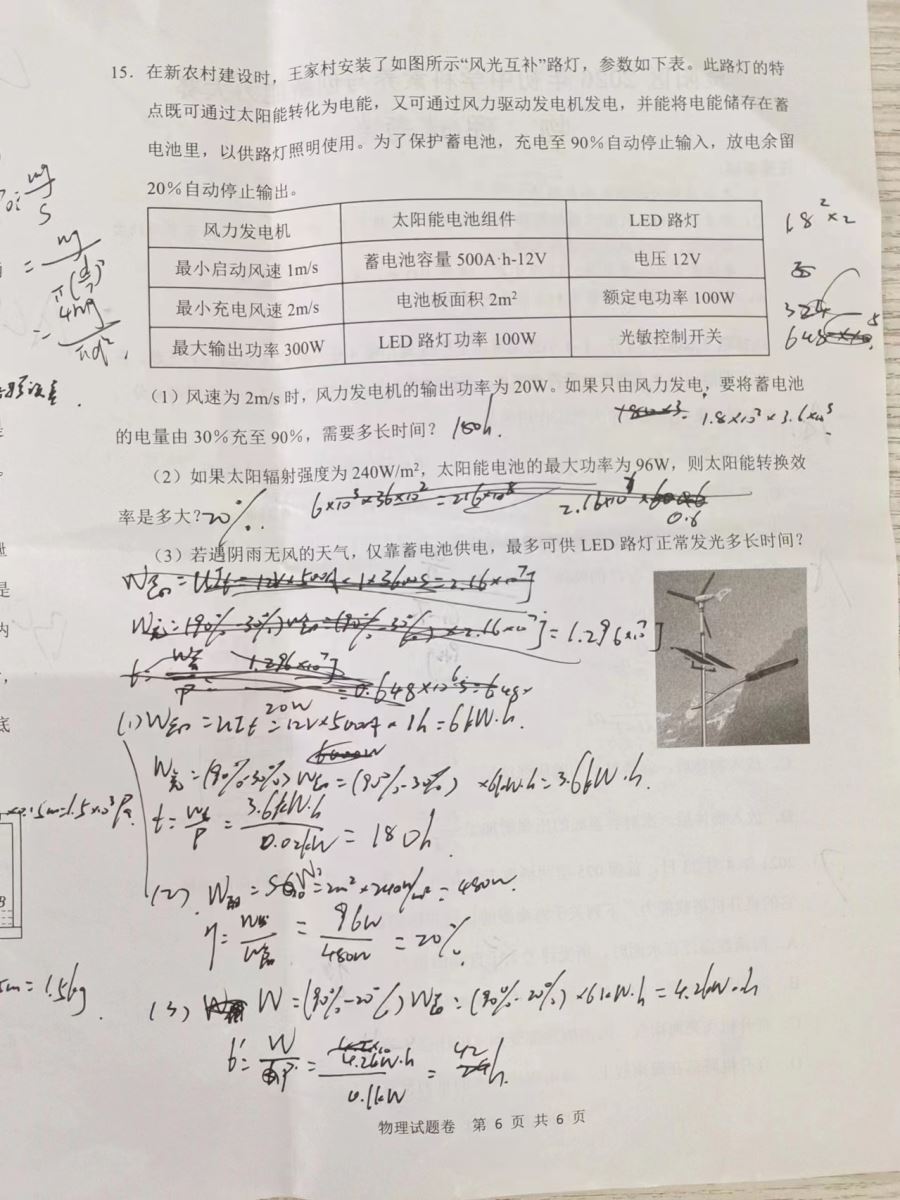 15. 在新农村建设时，王家村安装了如图所示“风光互补”路灯，参数如下表。此路灯的特
点既可通过太阳能转化为电能，又可通过风力驱动发电机发电，并能将电能储存在蓄
电池里，以供路灯照明使用。为了保护蓄电池，充电至 90%自动停止输入，放电余留
20%自动停止输出。
风力发电机 太阳能电池组件 LED 路灯
最小启动风速 1m/s 蓄电池容量 500A·h-12V 电压 12V
最小充电风速 2m/s 电池板面积 2m² 额定电功率 100W
最大输出功率 300W LED 路灯功率 100W 光敏控制开关
18²×2
324
648
（1）风速为 2m/s 时，风力发电机的输出功率为 20W。如果只由风力发电，要将蓄电池
1.8×10²×3.6×10³
的电量由 30%充至 90%，需要多长时间？ 180h.
（2）如果太阳辐射强度为 240W/m²，太阳能电池的最大功率为 96W，则太阳能转换效
6×10³×36×10²=2.16×10⁸
率是多大？20%.
0.6
（3）若遇阴雨无风的天气，仅靠蓄电池供电，最多可供 LED 路灯正常发光多长时间？
W总=UIt=12V×500A×1×3600s=2.16×10⁷J
W充=(90%-30%)W总=(90%-30%)×2.16×10⁷J=1.296×10⁷J
t=W充/P=1.296×10⁷J/20W=0.648×10⁶s=648
(1) W总=UIt=12V×500A×1h=6kW·h.
W充=(90%-30%)W总=(90%-30%)×6kW·h=3.6kW·h.
t=W充/P=3.6kW·h/0.02kW=180h
(2). =2m²×240W/m²=480W.
η= =96W/480W=20%
(3) W=(90%-20%)W总=(90%-20%)×6kW·h=4.2kW·h
t'=W/P=4.2kW·h/0.1kW=42h.
物理试题卷 第 6 页 共 6 页
mg
S
=
mg
4mg
πd²
=1.5×10³Pa
=1.5kg